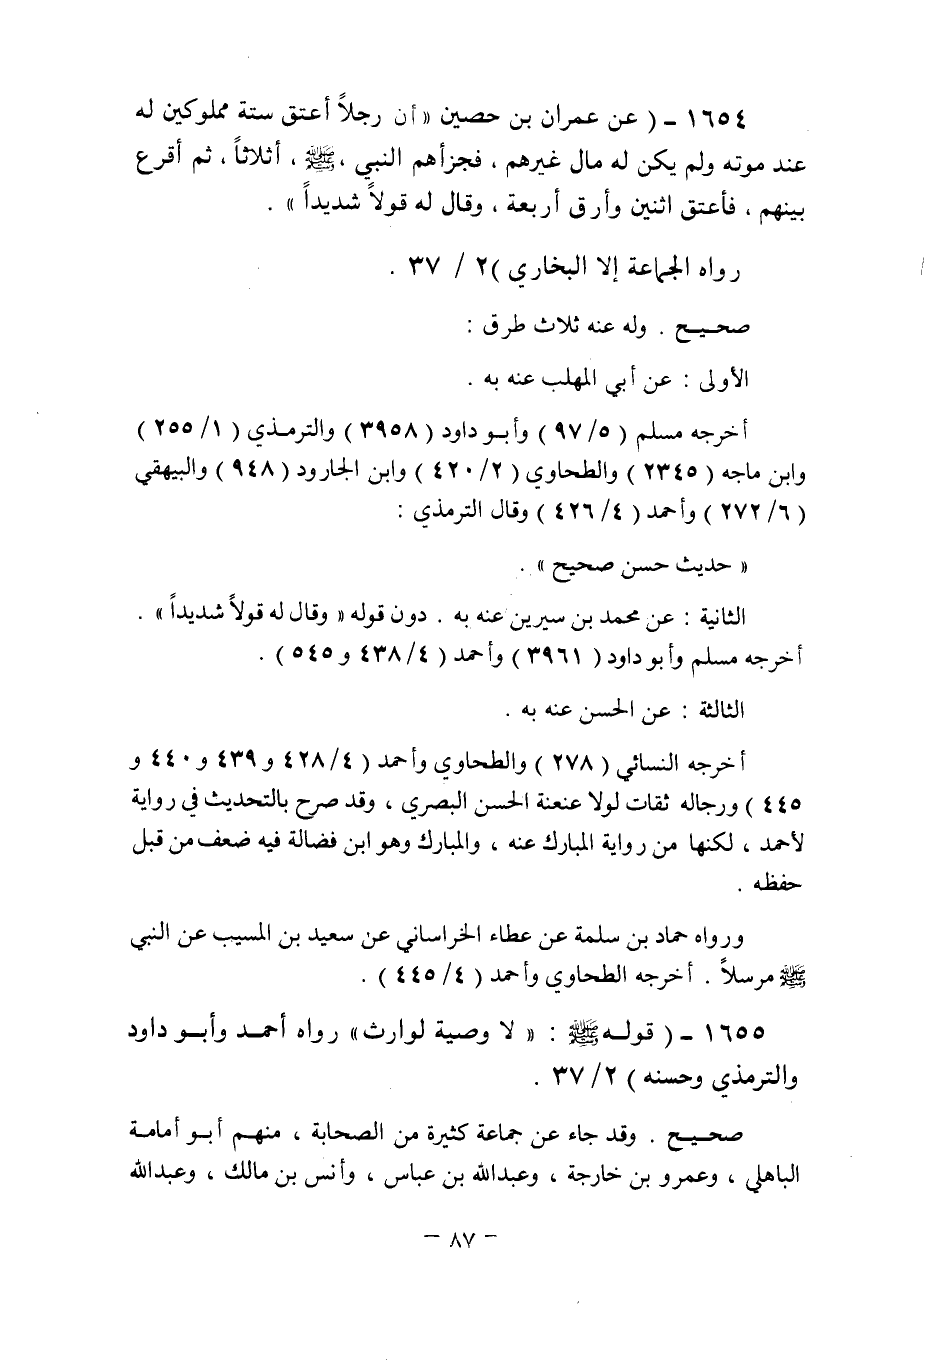 ١٦٥٤ - ( عن عمران بن حصين « أن رجلاً أعتق ستة مملوكين له
عند موته ولم يكن له مال غيرهم ، فجزأهم النبي ، ﷺ ، أثلاثاً ، ثم أقرع
بينهم ، فأعتق اثنين وأرق أربعة ، وقال له قولاً شديداً » .
رواه الجماعة إلا البخاري )٢ / ٣٧ .
صحيح . وله عنه ثلاث طرق :
الأولى : عن أبي المهلب عنه به .
أخرجه مسلم ( ٥/ ٩٧ ) وأبو داود ( ٣٩٥٨ ) والترمذي ( ١/ ٢٥٥ )
وابن ماجه ( ٢٣٤٥ ) والطحاوي ( ٢/ ٤٢٠ ) وابن الجارود ( ٩٤٨ ) والبيهقي
( ٦/ ٢٧٢ ) وأحمد ( ٤/ ٤٢٦ ) وقال الترمذي :
« حديث حسن صحيح » .
الثانية : عن محمد بن سيرين عنه به . دون قوله « وقال له قولاً شديداً » .
أخرجه مسلم وأبو داود ( ٣٩٦١ ) وأحمد ( ٤/ ٤٣٨ و ٥٤٥ ) .
الثالثة : عن الحسن عنه به .
أخرجه النسائي ( ٢٧٨ ) والطحاوي وأحمد ( ٤/ ٤٢٨ و ٤٣٩ و ٤٤٠ و
٤٤٥ ) ورجاله ثقات لولا عنعنة الحسن البصري ، وقد صرح بالتحديث في رواية
لأحمد ، لكنها من رواية المبارك عنه ، والمبارك وهو ابن فضالة فيه ضعف من قبل
حفظه .
ورواه حماد بن سلمة عن عطاء الخراساني عن سعيد بن المسيب عن النبي
ﷺ مرسلاً . أخرجه الطحاوي وأحمد ( ٤/ ٤٤٥ ) .
١٦٥٥ - ( قوله ﷺ : « لا وصية لوارث» رواه أحمد وأبو داود
والترمذي وحسنه ) ٢/ ٣٧ .
صحيح . وقد جاء عن جماعة كثيرة من الصحابة ، منهم أبو أمامة
الباهلي ، وعمرو بن خارجة ، وعبدالله بن عباس ، وأنس بن مالك ، وعبدالله
- ٨٧ -